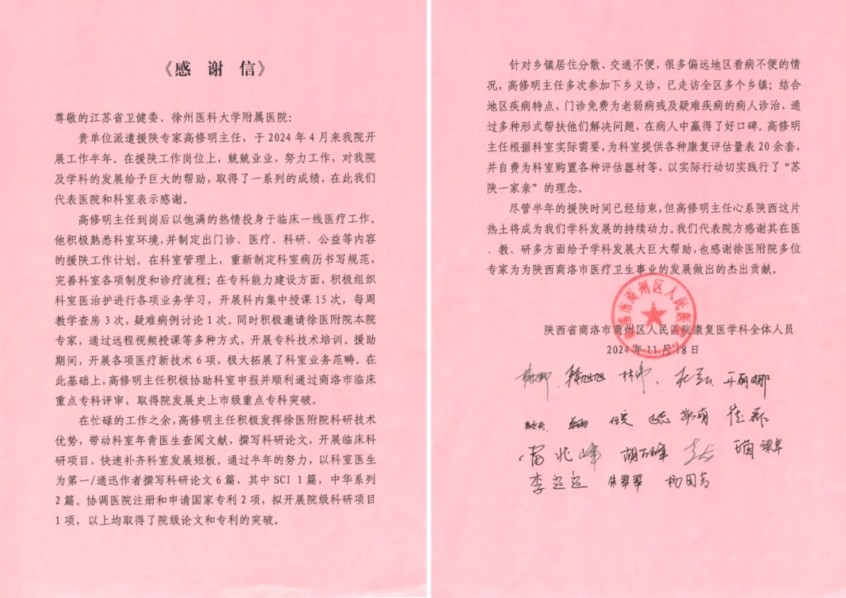 《感 谢 信》
尊敬的江苏省卫健委、徐州医科大学附属医院：
贵单位派遣援陕专家高修明主任，于 2024 年 4 月来我院开
展工作半年。在援陕工作岗位上，兢兢业业，努力工作，对我院
及学科的发展给予巨大的帮助，取得了一系列的成绩，在此我们
代表医院和科室表示感谢。
高修明主任到岗后以饱满的热情投身于临床一线医疗工作。
他积极熟悉科室环境，并制定出门诊、医疗、科研、公益等内容
的援陕工作计划。在科室管理上，重新制定科室病历书写规范，
完善科室各项制度和诊疗流程；在专科能力建设方面，积极组织
科室医治护进行各项业务学习，开展科内集中授课 15 次，每周
教学查房 3 次，疑难病例讨论 1 次。同时积极邀请徐医附院本院
专家，通过远程视频授课等多种方式，开展专科技术培训。援助
期间，开展各项医疗新技术 6 项，极大拓展了科室业务范畴。在
此基础上，高修明主任积极协助科室申报并顺利通过商洛市临床
重点专科评审，取得院发展史上市级重点专科突破。
在忙碌的工作之余，高修明主任积极发挥徐医附院科研技术
优势，带动科室年青医生查阅文献，撰写科研论文，开展临床科
研项目，快速补齐科室发展短板。通过半年的努力，以科室医生
为第一/通迅作者撰写科研论文 6 篇，其中 SCI 1 篇，中华系列
2 篇。协调医院注册和申请国家专利 2 项，拟开展院级科研项目
1 项，以上均取得了院级论文和专利的突破。
针对乡镇居住分散、交通不便，很多偏远地区看病不便的情
况，高修明主任多次参加下乡义诊，已走访全区多个乡镇；结合
地区疾病特点，门诊免费为老弱病残及疑难疾病的病人诊治，通
过多种形式帮扶他们解决问题，在病人中赢得了好口碑。高修明
主任根据科室实际需要，为科室提供各种康复评估量表 20 余套，
并自费为科室购置各种评估器材等，以实际行动切实践行了“苏
陕一家亲”的理念。
尽管半年的援陕时间已经结束，但高修明主任心系陕西这片
热土将成为我们学科发展的持续动力。我们代表院方感谢其在医
、教、研多方面给予学科发展大巨大帮助，也感谢徐医附院多位
专家为为陕西商洛市医疗卫生事业的发展做出的杰出贡献。
陕西省商洛市商州区人民医院康复医学科全体人员
2024 年 11 月 18 日